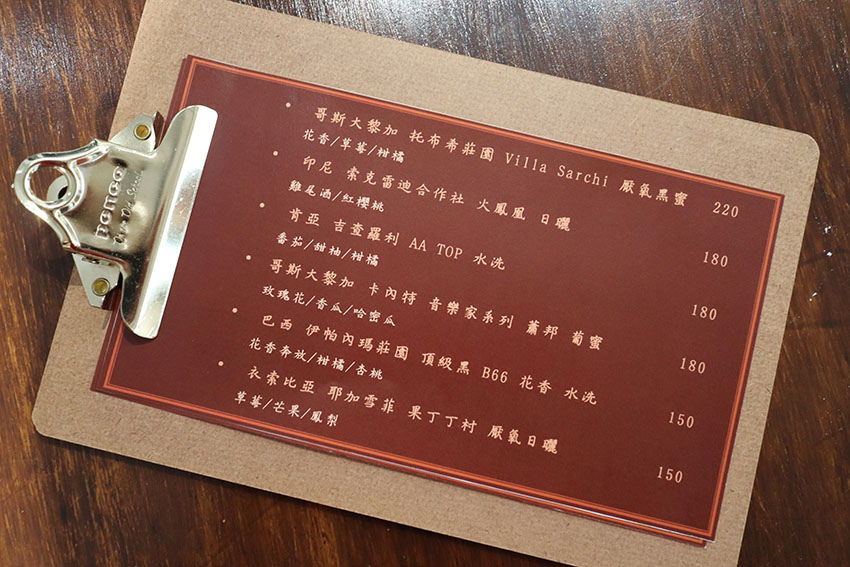 penco
哥斯大黎加 托布希莊園 Villa Sarchi 厭氧黑蜜 220
花香/草莓/柑橘
印尼 索克雷迪合作社 火鳳凰 日曬 180
雞尾酒/紅櫻桃
肯亞 吉查羅利 AA TOP 水洗 180
番茄/甜柚/柑橘
哥斯大黎加 卡內特 音樂家系列 蕭邦 葡蜜 180
玫瑰花/香瓜/哈密瓜
巴西 伊帕內瑪莊園 頂級黑 B66 花香 水洗 150
花香奔放/柑橘/杏桃
衣索比亞 耶加雪菲 果丁丁村 厭氧日曬 150
草莓/芒果/鳳梨